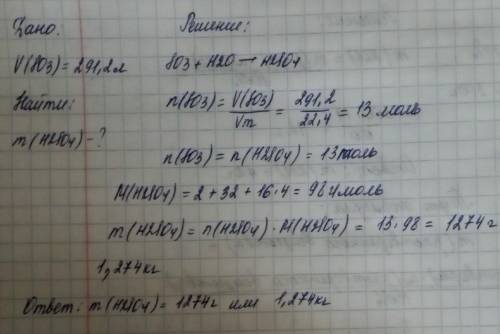 Дано:
Решение:
V(SO3) = 291,2л
SO3 + H2O → H2SO4
Найти:
m(H2SO4) - ?
n(SO3) = V(SO3)/Vm = 291,2/22,4 = 13 моль
n(SO3) = n(H2SO4) = 13 моль
M(H2SO4) = 2 + 32 + 16·4 = 98 г/моль
m(H2SO4) = n(H2SO4) · M(H2SO4) = 13·98 = 1274 г
1,274 кг
Ответ: m(H2SO4) = 1274 г или 1,274 кг